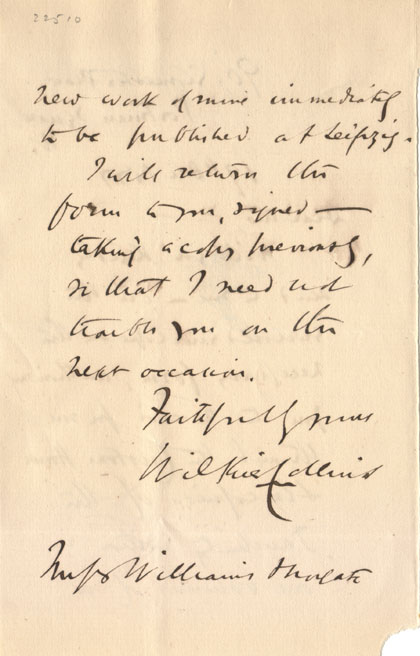 22510
new work of mine immediately
to be published at Leipzig.
I will return the
form to you, signed —
taking a copy previously,
so that I need not
trouble you on the
next occasion.
Faithfully yours
Wilkie Collins
Messrs Williams & Norgate